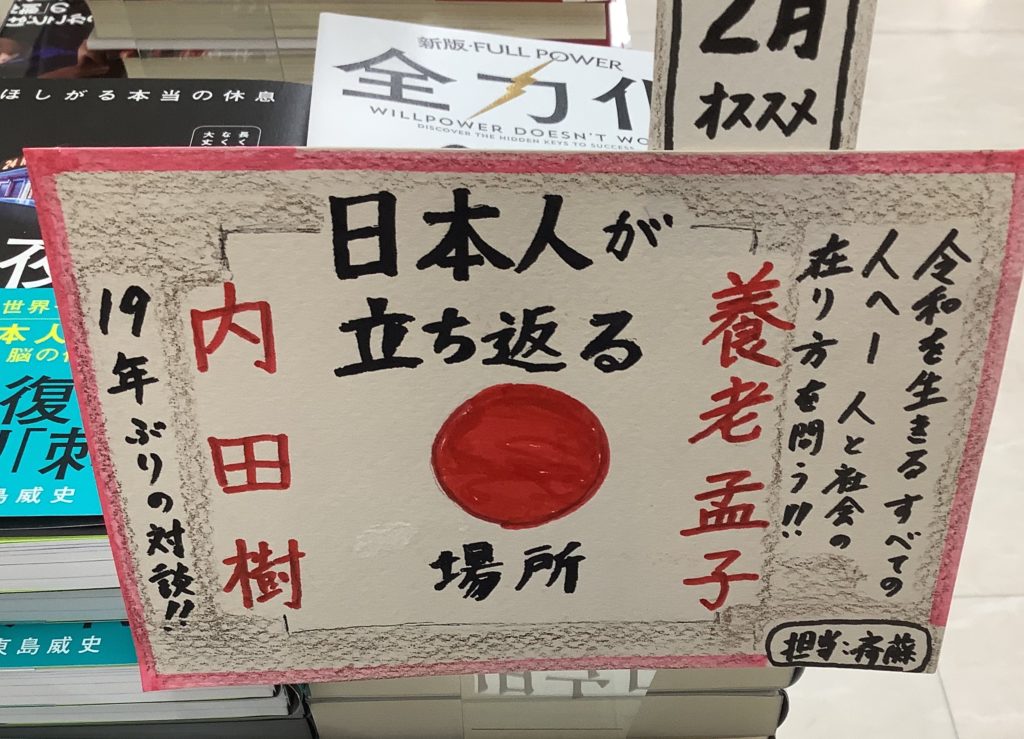 新版・FULL POWER
全力化
WILLPOWER DOESN'T WO
DISCOVER THE HIDDEN KEYS TO SUCCESS
2月
オススメ
ほしがる本当の休息
日本人が
立ち返る
場所
養老孟子
内田樹
令和を生きるすべての
人へー 人と社会の
在り方を問う!!
19年ぶりの対談!!
担当:斉藤
世界
本人
脳の
復
「刺
島威史
東島威史